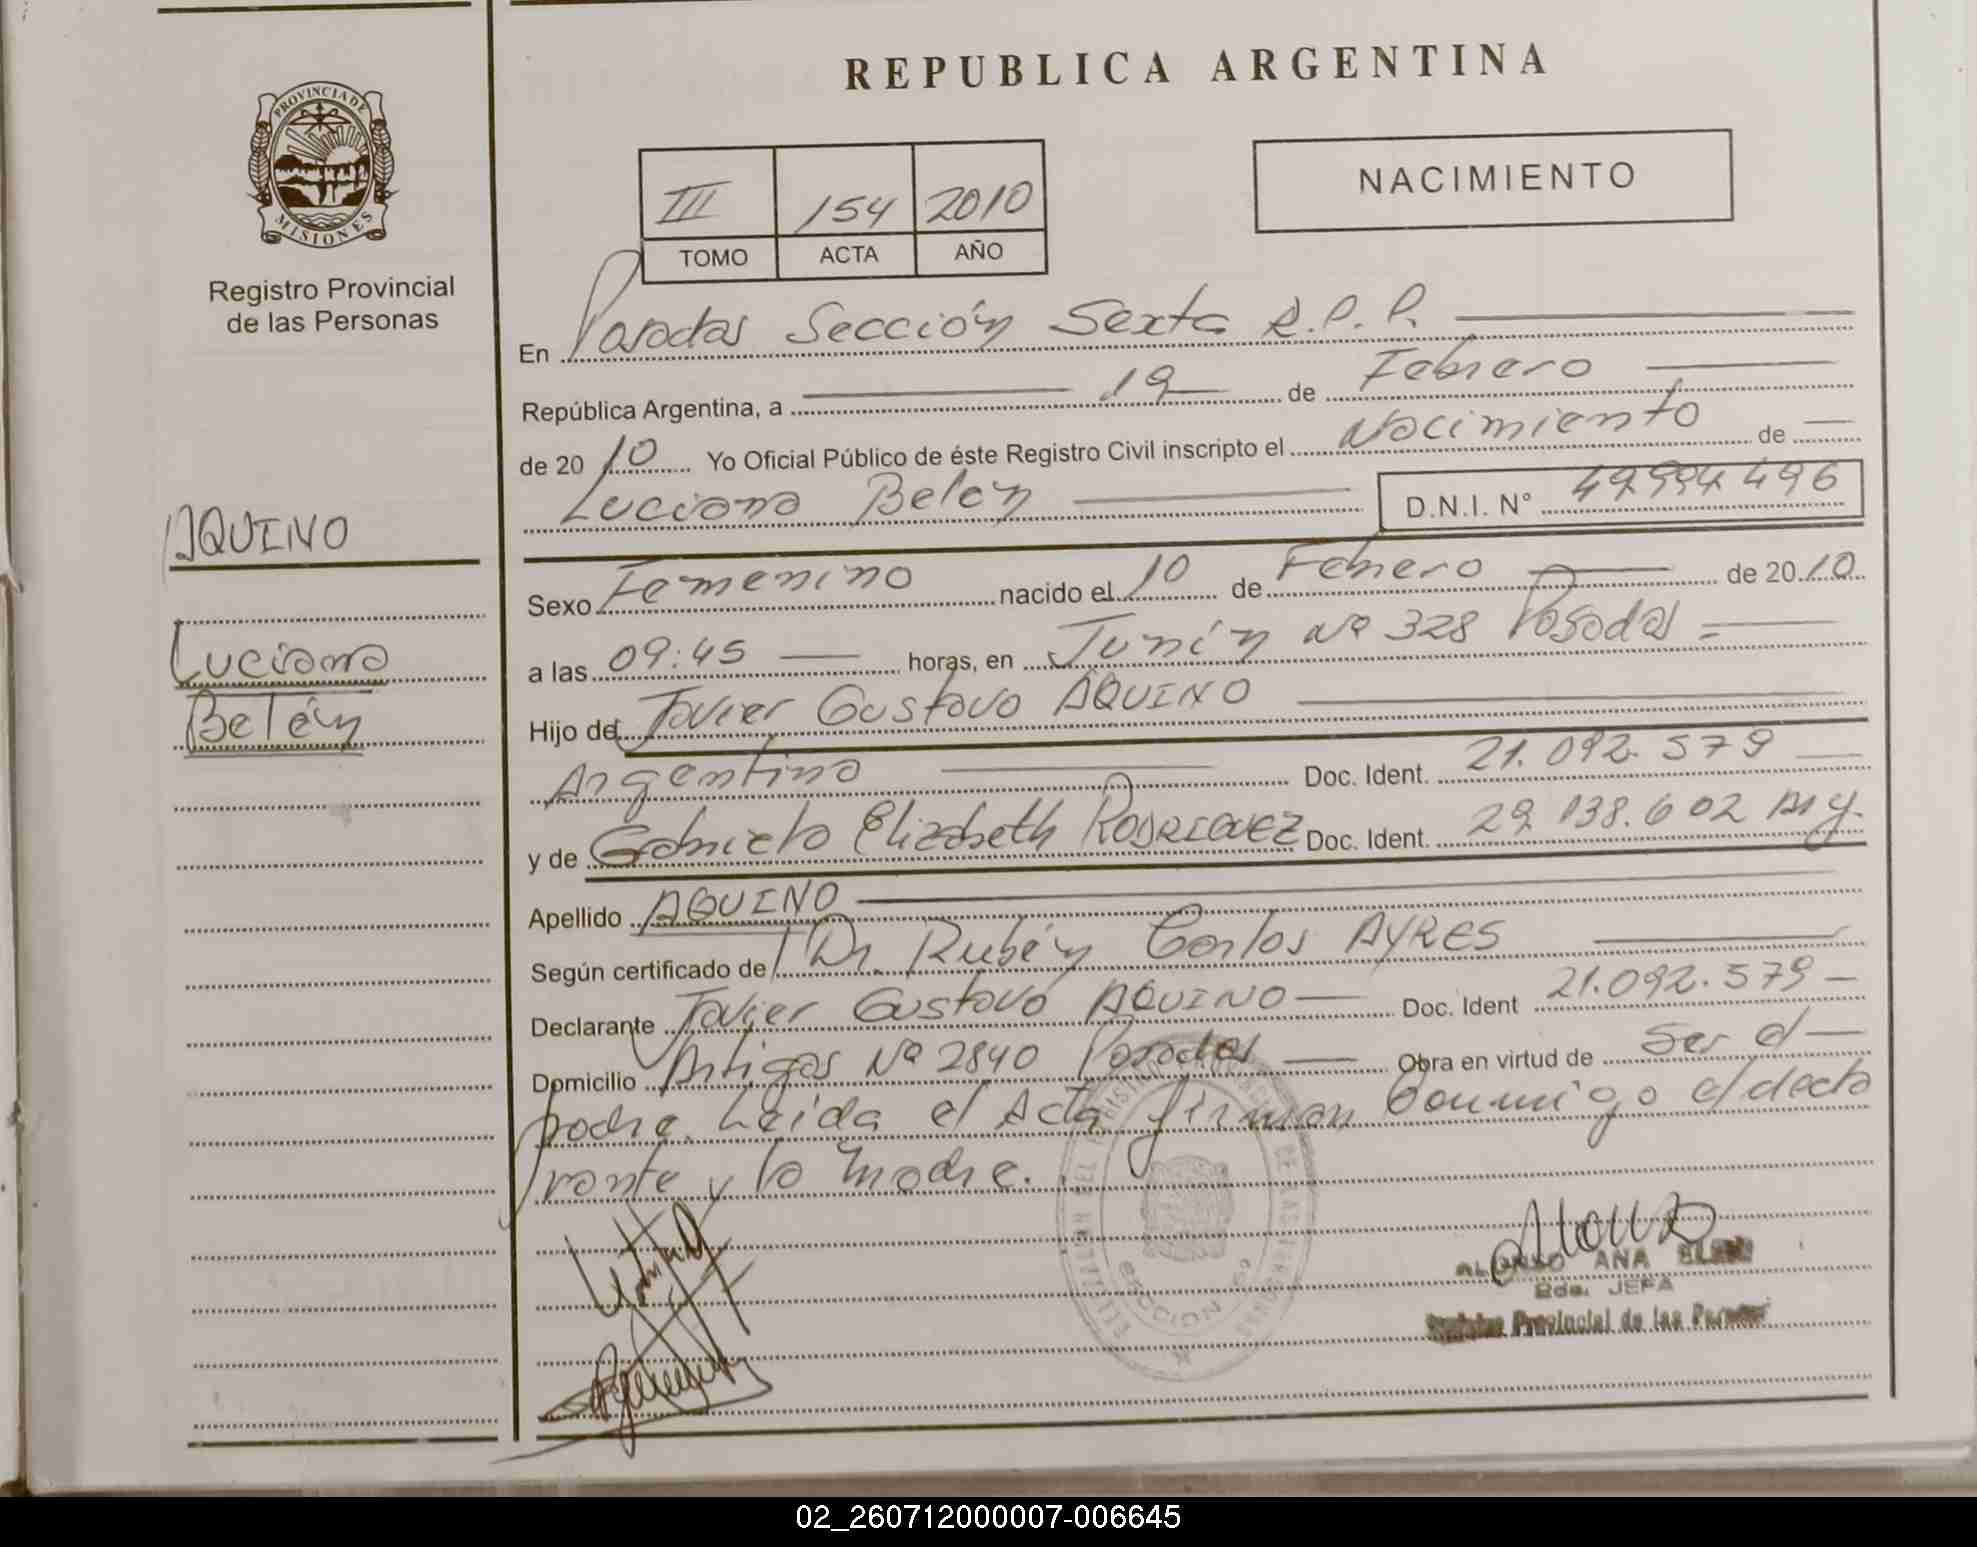 REPUBLICA ARGENTINA
PROVINCIA DE
MISIONES
Registro Provincial
de las Personas
NACIMIENTO
III 154 2010
TOMO ACTA AÑO
En Posadas Sección Sexta R.P.P.
República Argentina, a 19 de Febrero
de 2010 Yo Oficial Público de éste Registro Civil inscripto el Nacimiento de
Luciana Belén D.N.I. N°
AQUINO
Luciana
Belén
Sexo Femenino nacido el 10 de Febrero de 2010
a las 09:45 horas, en Junín Nº 328 Posadas
Hijo de Javier Gustavo AQUINO
Argentino Doc. Ident. 21.092.579
y de Gabriela Elizabeth RODRIGUEZ Doc. Ident. 29.138.602 Arg.
Apellido AQUINO
Según certificado de Dr. Rubén Carlos AYRES
Declarante Javier Gustavo AQUINO Doc. Ident 21.092.579
Domicilio Artigas Nº 2840 Posadas Obra en virtud de ser el
padre. Leída el Acta firman conmigo el decla
rante y la madre.
ALONSO ANA
JEFA
Provincial de las Personas
02_260712000007-006645